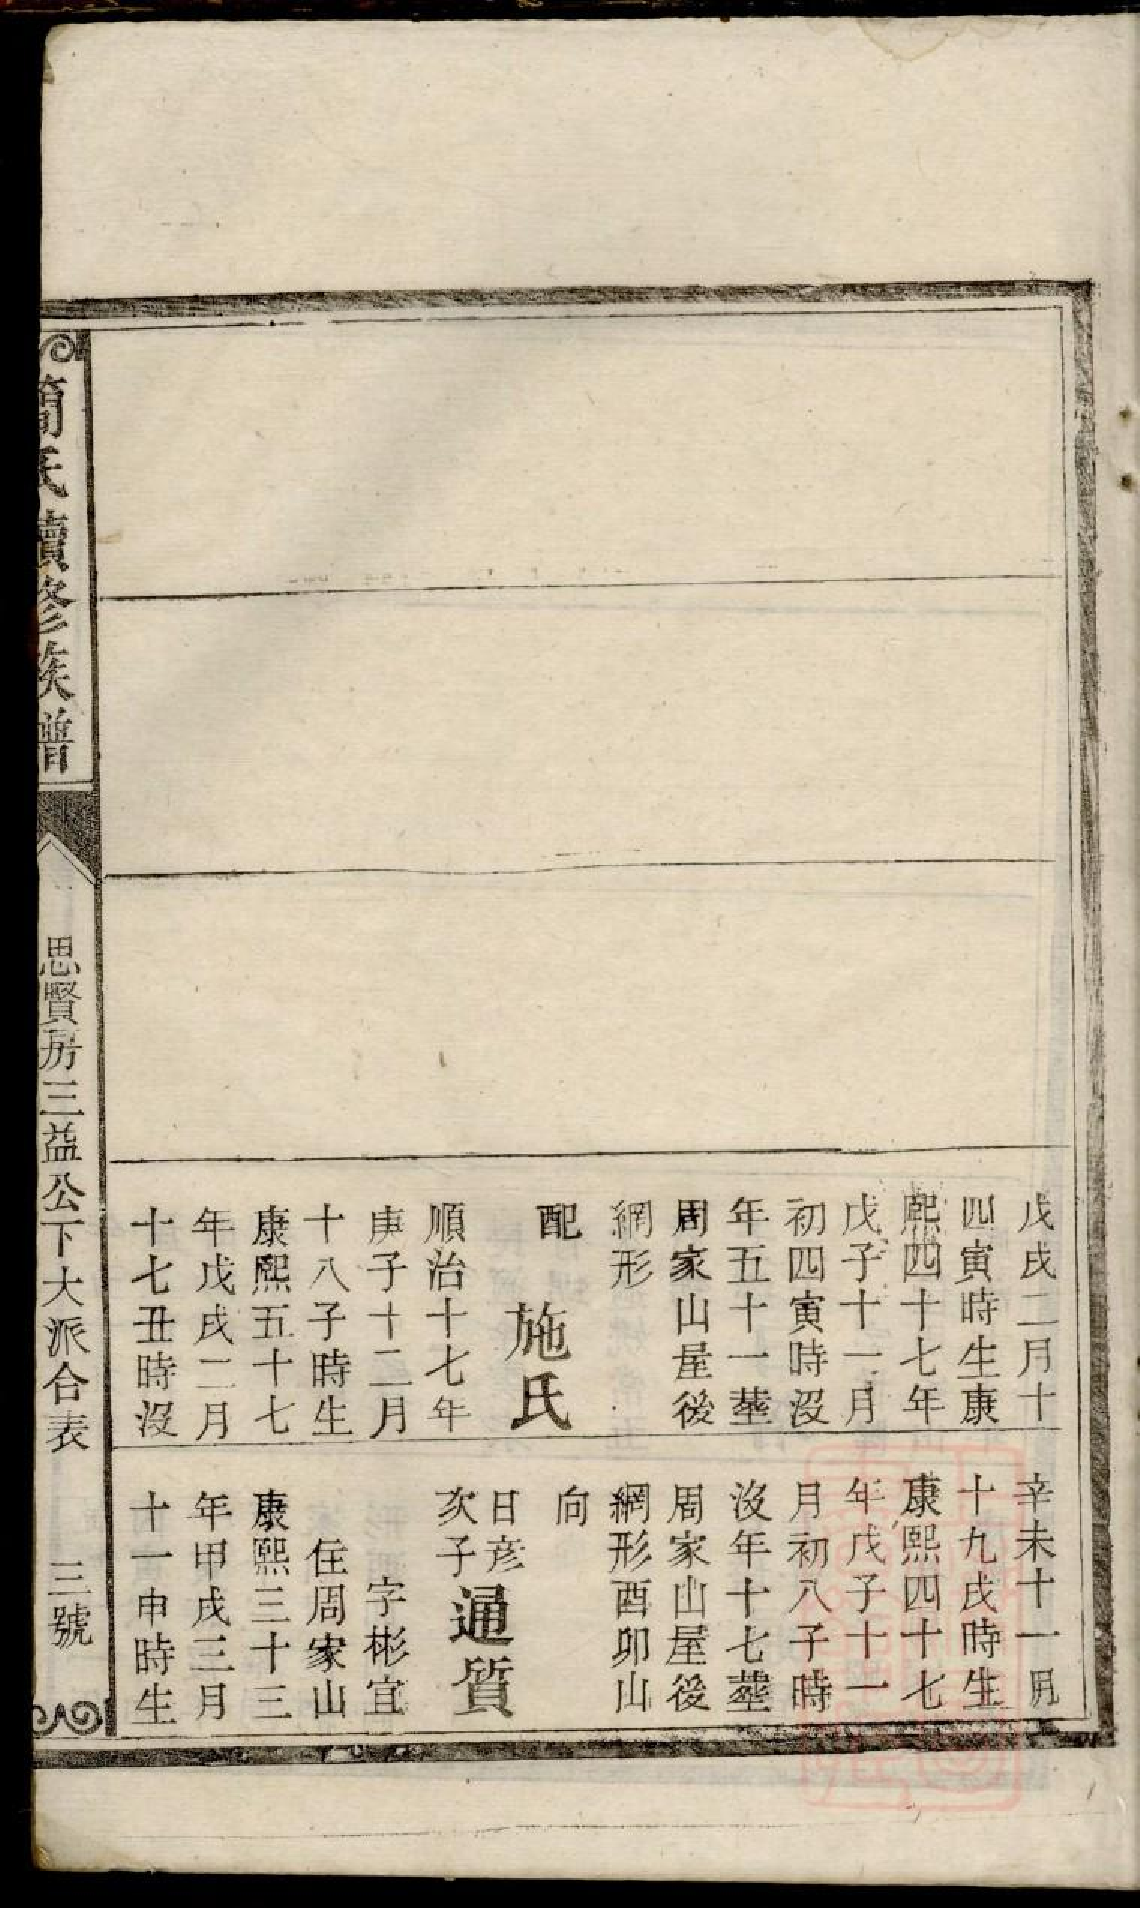 戊戌二月十
四寅時生康
熙四十七年
戊子十一月
初四寅時沒
年五十一塟
周家山屋後
網形
配
施氏
順治十七年
庚子十二月
十八子時生
康熙五十七
年戊戌二月
十七丑時沒
辛未十一月
十九戌時生
康熙四十七
年戊子十一
月初八子時
沒年十七塟
周家山屋後
網形酉卯山
向
日彦
次子
通質
字彬宜
住周家山
康熙三十三
年甲戌三月
十一申時生
簡氏續修族譜
思賢房三益公下大派合表
三號